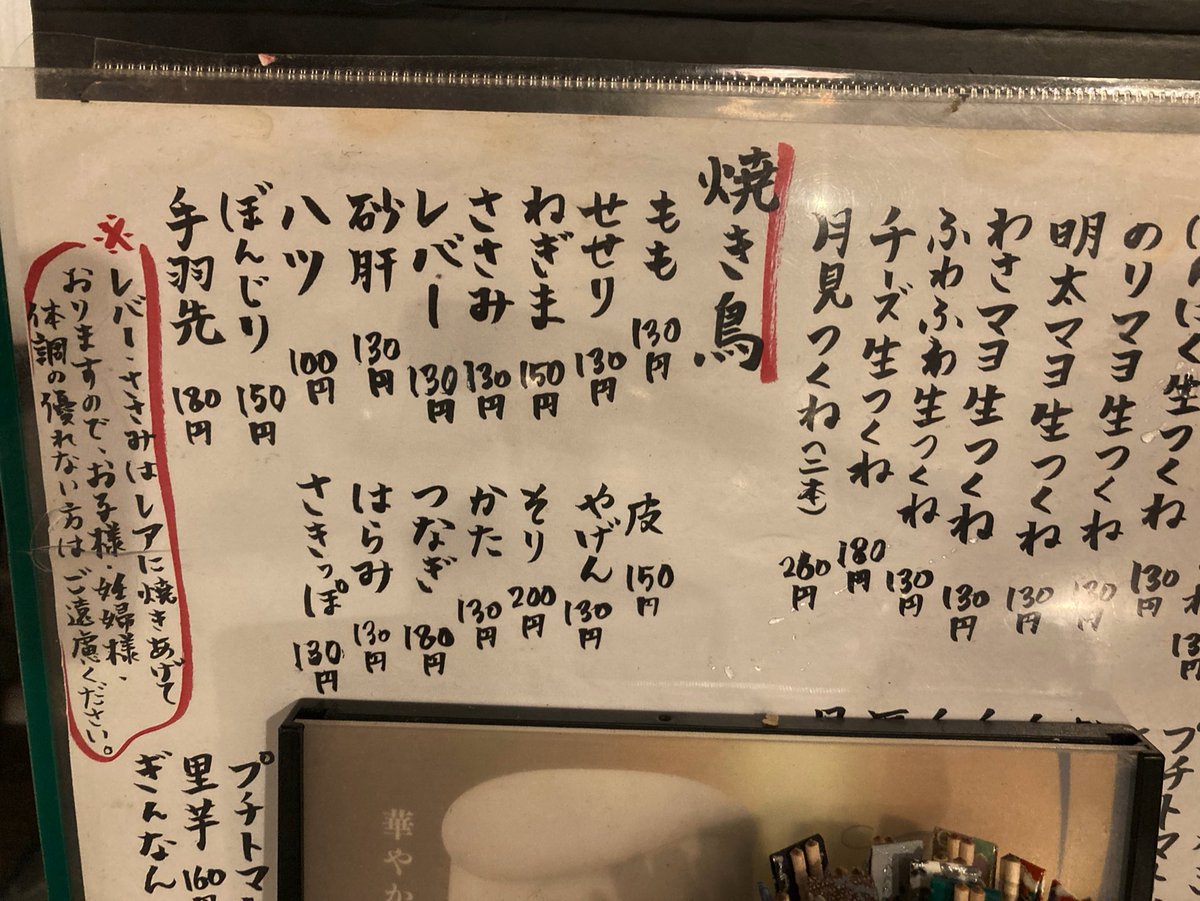 生つくね
のりマヨ生つくね 130円
明太マヨ生つくね 130円
わさマヨ生つくね 130円
ふわふわ生つくね 130円
チーズ生つくね 180円
月見つくね(二本) 260円
焼き鳥
もも 130円
せせり 130円
ねぎま 150円
ささみ 130円
レバー 130円
砂肝 130円
ハツ 100円
ぼんじり 150円
手羽先 180円
皮 150円
やげん 130円
そり 200円
かた 130円
つなぎ 180円
はらみ 130円
さきっぽ 130円
※レバー・ささみはレアに焼きあげて
おりますので、お子様・妊婦様、
体調の優れない方はご遠慮ください。
プチトマ
プチトマ
里芋 160円
ぎんなん
華やか